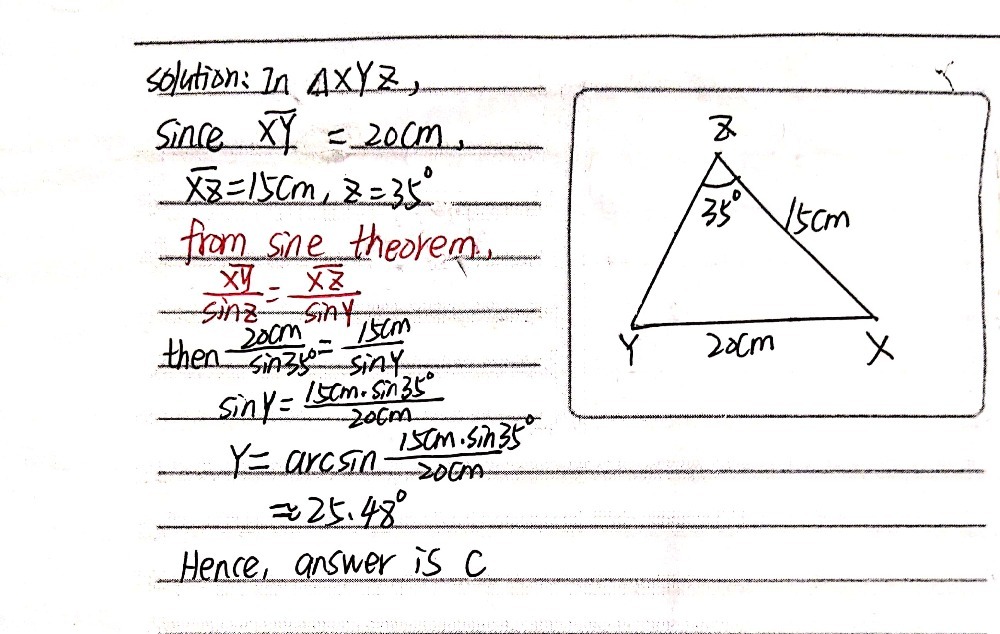 solution: In ΔXYZ,
since X̅Y̅ = 20cm,
X̅Z̅=15cm, Z=35°
from sine theorem,
X̅Y̅/sinZ = X̅Z̅/sinY
then 20cm/sin35° = 15cm/sinY
sinY = 15cm·sin35°/20cm
Y = arcsin 15cm·sin35°/20cm
≈25.48°
Hence, answer is C
Z
35°
15cm
Y
20cm
X